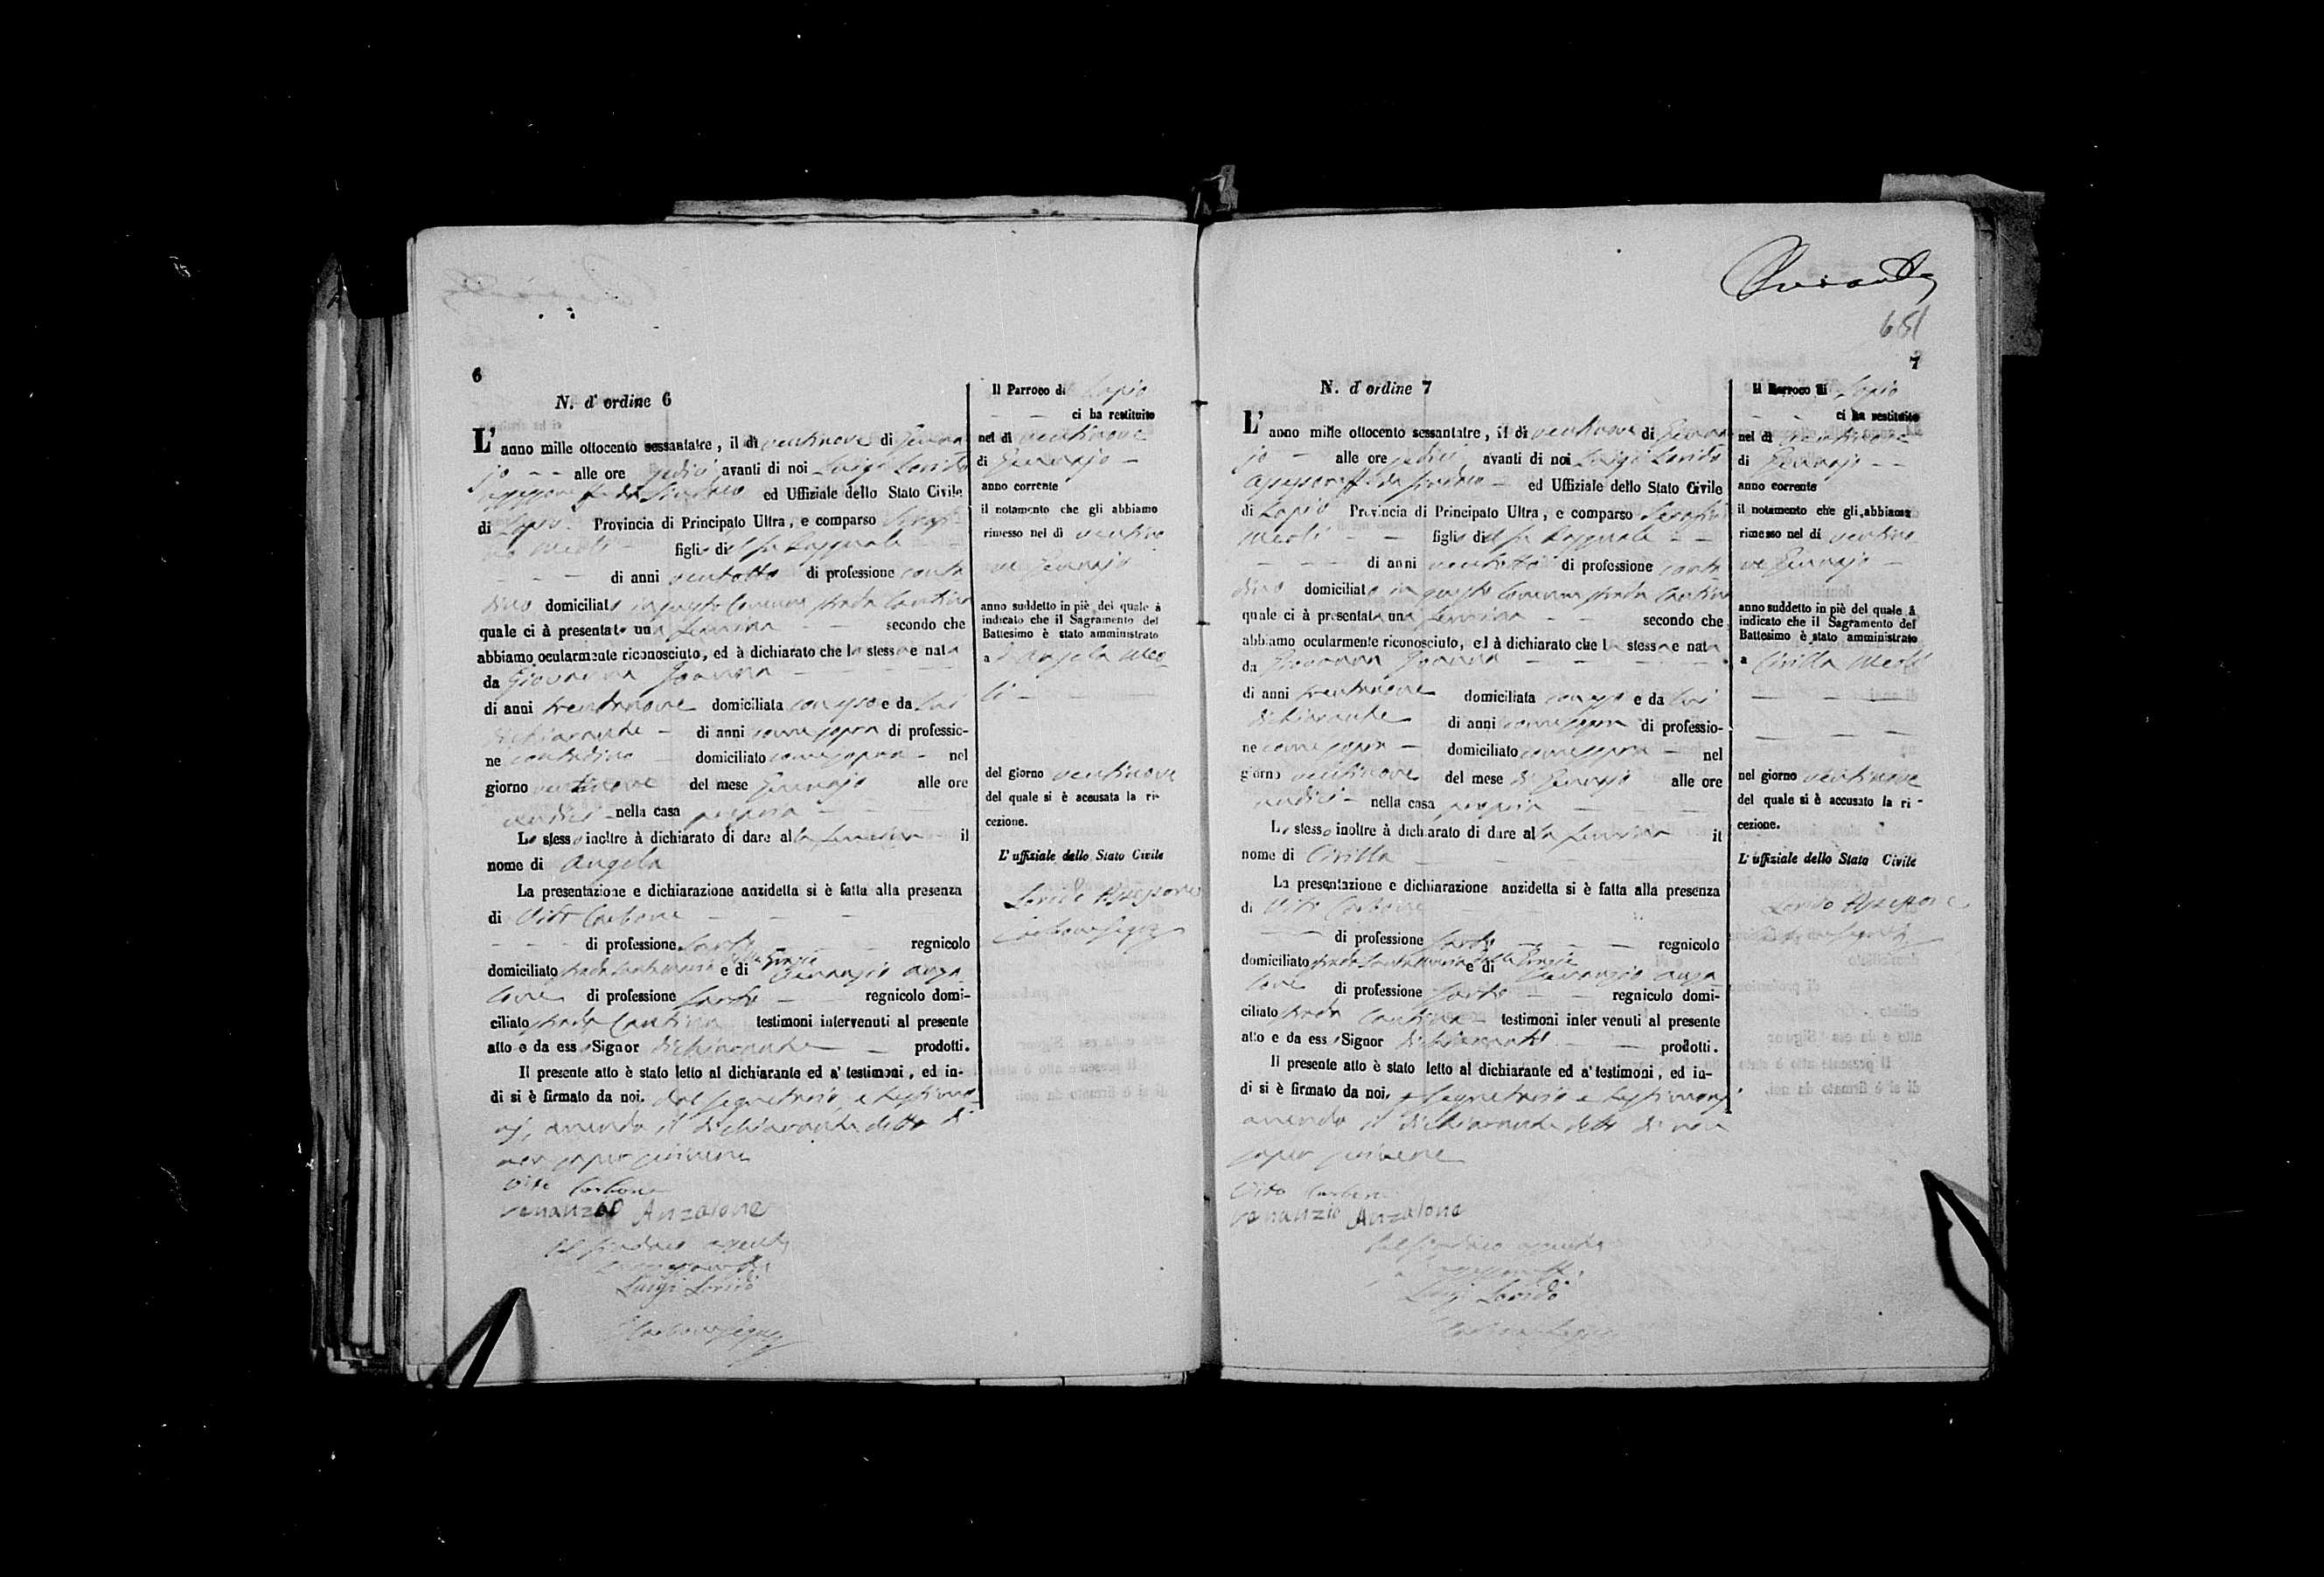 6
N. d'ordine 6
L'anno mille ottocento sessantatre, il dì ventinove di Genna
jo - - alle ore sedici avanti di noi Luigi Lorido
assessore ff da Sindaco ed Uffiziale dello Stato Civile
di Lapio. Provincia di Principato Ultra, e comparso Serafi
no Meoli - figlio del fu Pasquale
- - - di anni ventotto di professione conta
dino domiciliato in questo Comune strada Cantina
quale ci à presentato una femina - - secondo che
abbiamo ocularmente riconosciuto, ed à dichiarato che la stessa e nata
da Giovanna Joanna - - -
di anni trentanove domiciliata con esso e da lui
dichiarante - di anni come sopra di professio-
ne contadino domiciliato come sopra - nel
giorno ventinove del mese Gennajo alle ore
undici - nella casa propria - - -
Lo stesso inoltre à dichiarato di dare alla femina il
nome di Angela
La presentazione e dichiarazione anzidetta si è fatta alla presenza
di Vito Carbone - - -
- - - di professione Sarto - - regnicolo
domiciliato strada Santa Maria delle Grazie e di Venanzio Anza
lone di professione Sarto - - regnicolo domi-
ciliato strada Cantina testimoni intervenuti al presente
atto e da esso Signor dichiarante - prodotti.
Il presente atto è stato letto al dichiarante ed a' testimoni, ed in-
di si è firmato da noi, dal segretario, e testimo
nj, avendo il dichiarante detto di
non saper scrivere
Vito Carbone
Venanzio Anzalone
Pel Sindaco assente
Luigi Lorido
Carbone Seg
Il Parroco di Lapio
- - ci ha restituito
nel dì ventinove
di Gennajo -
anno corrente
il notamento che gli abbiamo
rimesso nel dì ventino
ve Gennajo
anno suddetto in piè del quale à
indicato che il Sagramento del
Battesimo è stato amministrato
a Angela Meo
li - - -
del giorno ventinove
del quale si è accusata la ri-
cezione.
L'uffiziale dello Stato Civile
Lorido Assessore
Carbone Seg
7
N. d'ordine 7
L'anno mille ottocento sessantatre, il dì ventinove di Genna
jo - alle ore sedici avanti di noi Luigi Lorido
assessore ff da Sindaco - ed Uffiziale dello Stato Civile
di Lapio Provincia di Principato Ultra, e comparso Serafino
Meoli - - figlio del fu Pasquale - -
- - - di anni ventotto di professione conta
dino domiciliato in questo Comune strada Cantina
quale ci à presentata una femina - - secondo che
abbiamo ocularmente riconosciuto, ed à dichiarato che la stessa e nata
da Giovanna Joanna - - - -
di anni trentanove domiciliata con esso e da lui
dichiarante di anni come sopra di professio-
ne come sopra - domiciliato come sopra - nel
giorno ventinove del mese di Gennajo alle ore
undici - nella casa propria - - -
Lo stesso inoltre à dichiarato di dare alla femina il
nome di Civilla - - -
La presentazione e dichiarazione anzidetta si è fatta alla presenza
di Vito Carbone
- - di professione Sarto - - - regnicolo
domiciliato strada Santa Maria delle Grazie e di Venanzio Anza
lone di professione Sarto - - regnicolo domi-
ciliato strada Cantina - testimoni intervenuti al presente
atto e da esso Signor dichiarante - - prodotti.
Il presente atto è stato letto al dichiarante ed a' testimoni, ed in-
di si è firmato da noi, e segretario e testimonj
avendo il dichiarante detto di non
saper scrivere
Vito Carbone
Venanzio Anzalone
Pel Sindaco assente
Luigi Lorido
Carbone Seg
Il Parroco di Lapio
- - ci ha restituito
nel dì ventinove
di Gennajo - -
anno corrente
il notamento che gli abbiamo
rimesso nel dì ventino
ve Gennajo -
anno suddetto in piè del quale à
indicato che il Sagramento del
Battesimo è stato amministrato
a Civilla Meoli
- - -
- - -
nel giorno ventinove
del quale si è accusato la ri-
cezione.
L'uffiziale dello Stato Civile
Lorido Assessore